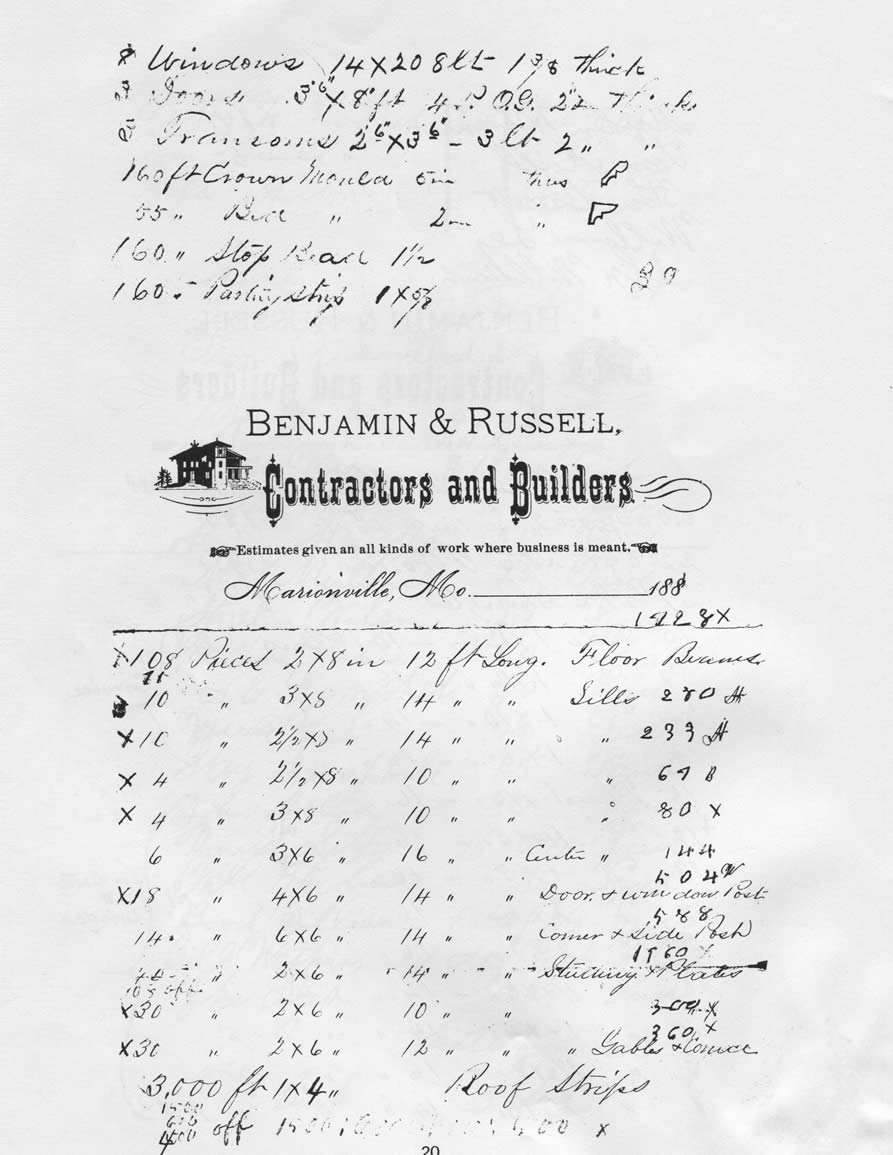 8 Windows 14 X 20 8 lt 1 3/8 thick
3 Doors 3'6" X 8' ft 4 P. O.G. 2 in thick
3 Transoms 2 6" X 3 6" - 3 lt 2 " "
160 ft Crown Mould 5 in thus
55 " Bed " 2 in "
160 " Stop Bead 1 1/2
160 " Parting Strip 1 x 5/8
BENJAMIN & RUSSELL,
Contractors and Builders
Estimates given an all kinds of work where business is meant.
Marionville, Mo. 188
1728 X
X 108 Pieces 2 X 8 in 12 ft Long. Floor Beams
10 " 3 X 8 " 14 " " Sills 280
X 10 " 2 1/2 X 8 " 14 " " " 233
X 4 " 2 1/2 X 8 " 10 " " " 67
X 4 " 3 X 8 " 10 " " " 80 X
6 " 3 X 6 " 16 " " Center " 144
504
X 18 " 4 X 6 " 14 " " Door & window Post
588
14 " 6 X 6 " 14 " " Corner & Side Post
1960 X
" 2 X 6 " 14 " " Studding & Plates
108 off
X 30 " 2 X 6 " 10 " 300 X
360 X
X 30 " 2 X 6 " 12 " " " Gables & Cornice
3,000 ft 1 X 4 " Roof Strips
1500
off 1500 X
20